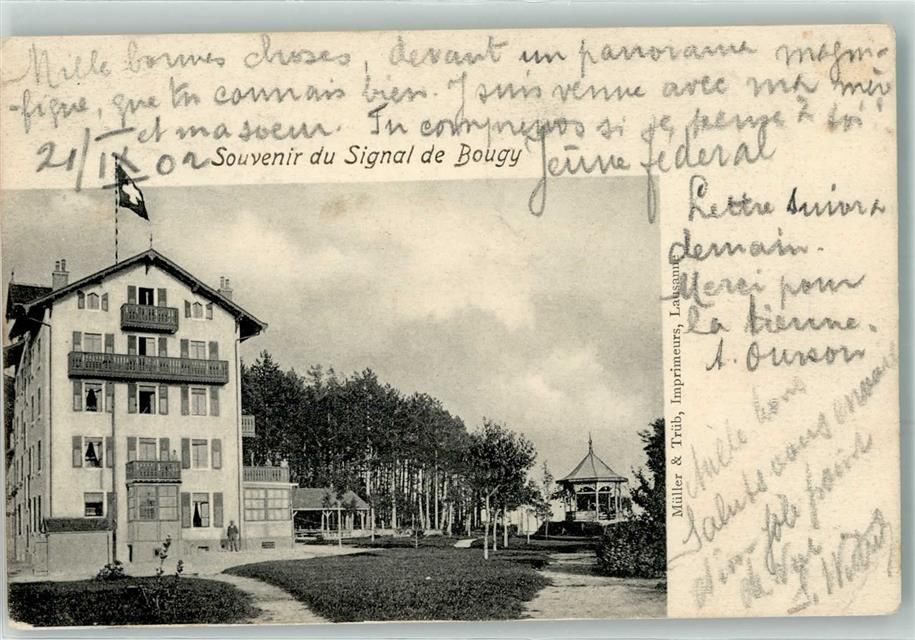 Mille bonnes choses, devant un panorama magni-
-fique, que tu connais bien. J'suis venue avec ma mère
et ma soeur. Tu comprends si je pense à toi!
21/IX 02
Jeûne fédéral
Souvenir du Signal de Bougy
Lettre suivra
demain.
Merci pour
la tienne.
A. Ourson
Müller & Trüb, Imprimeurs, Lausanne
Mille bons
Saluts